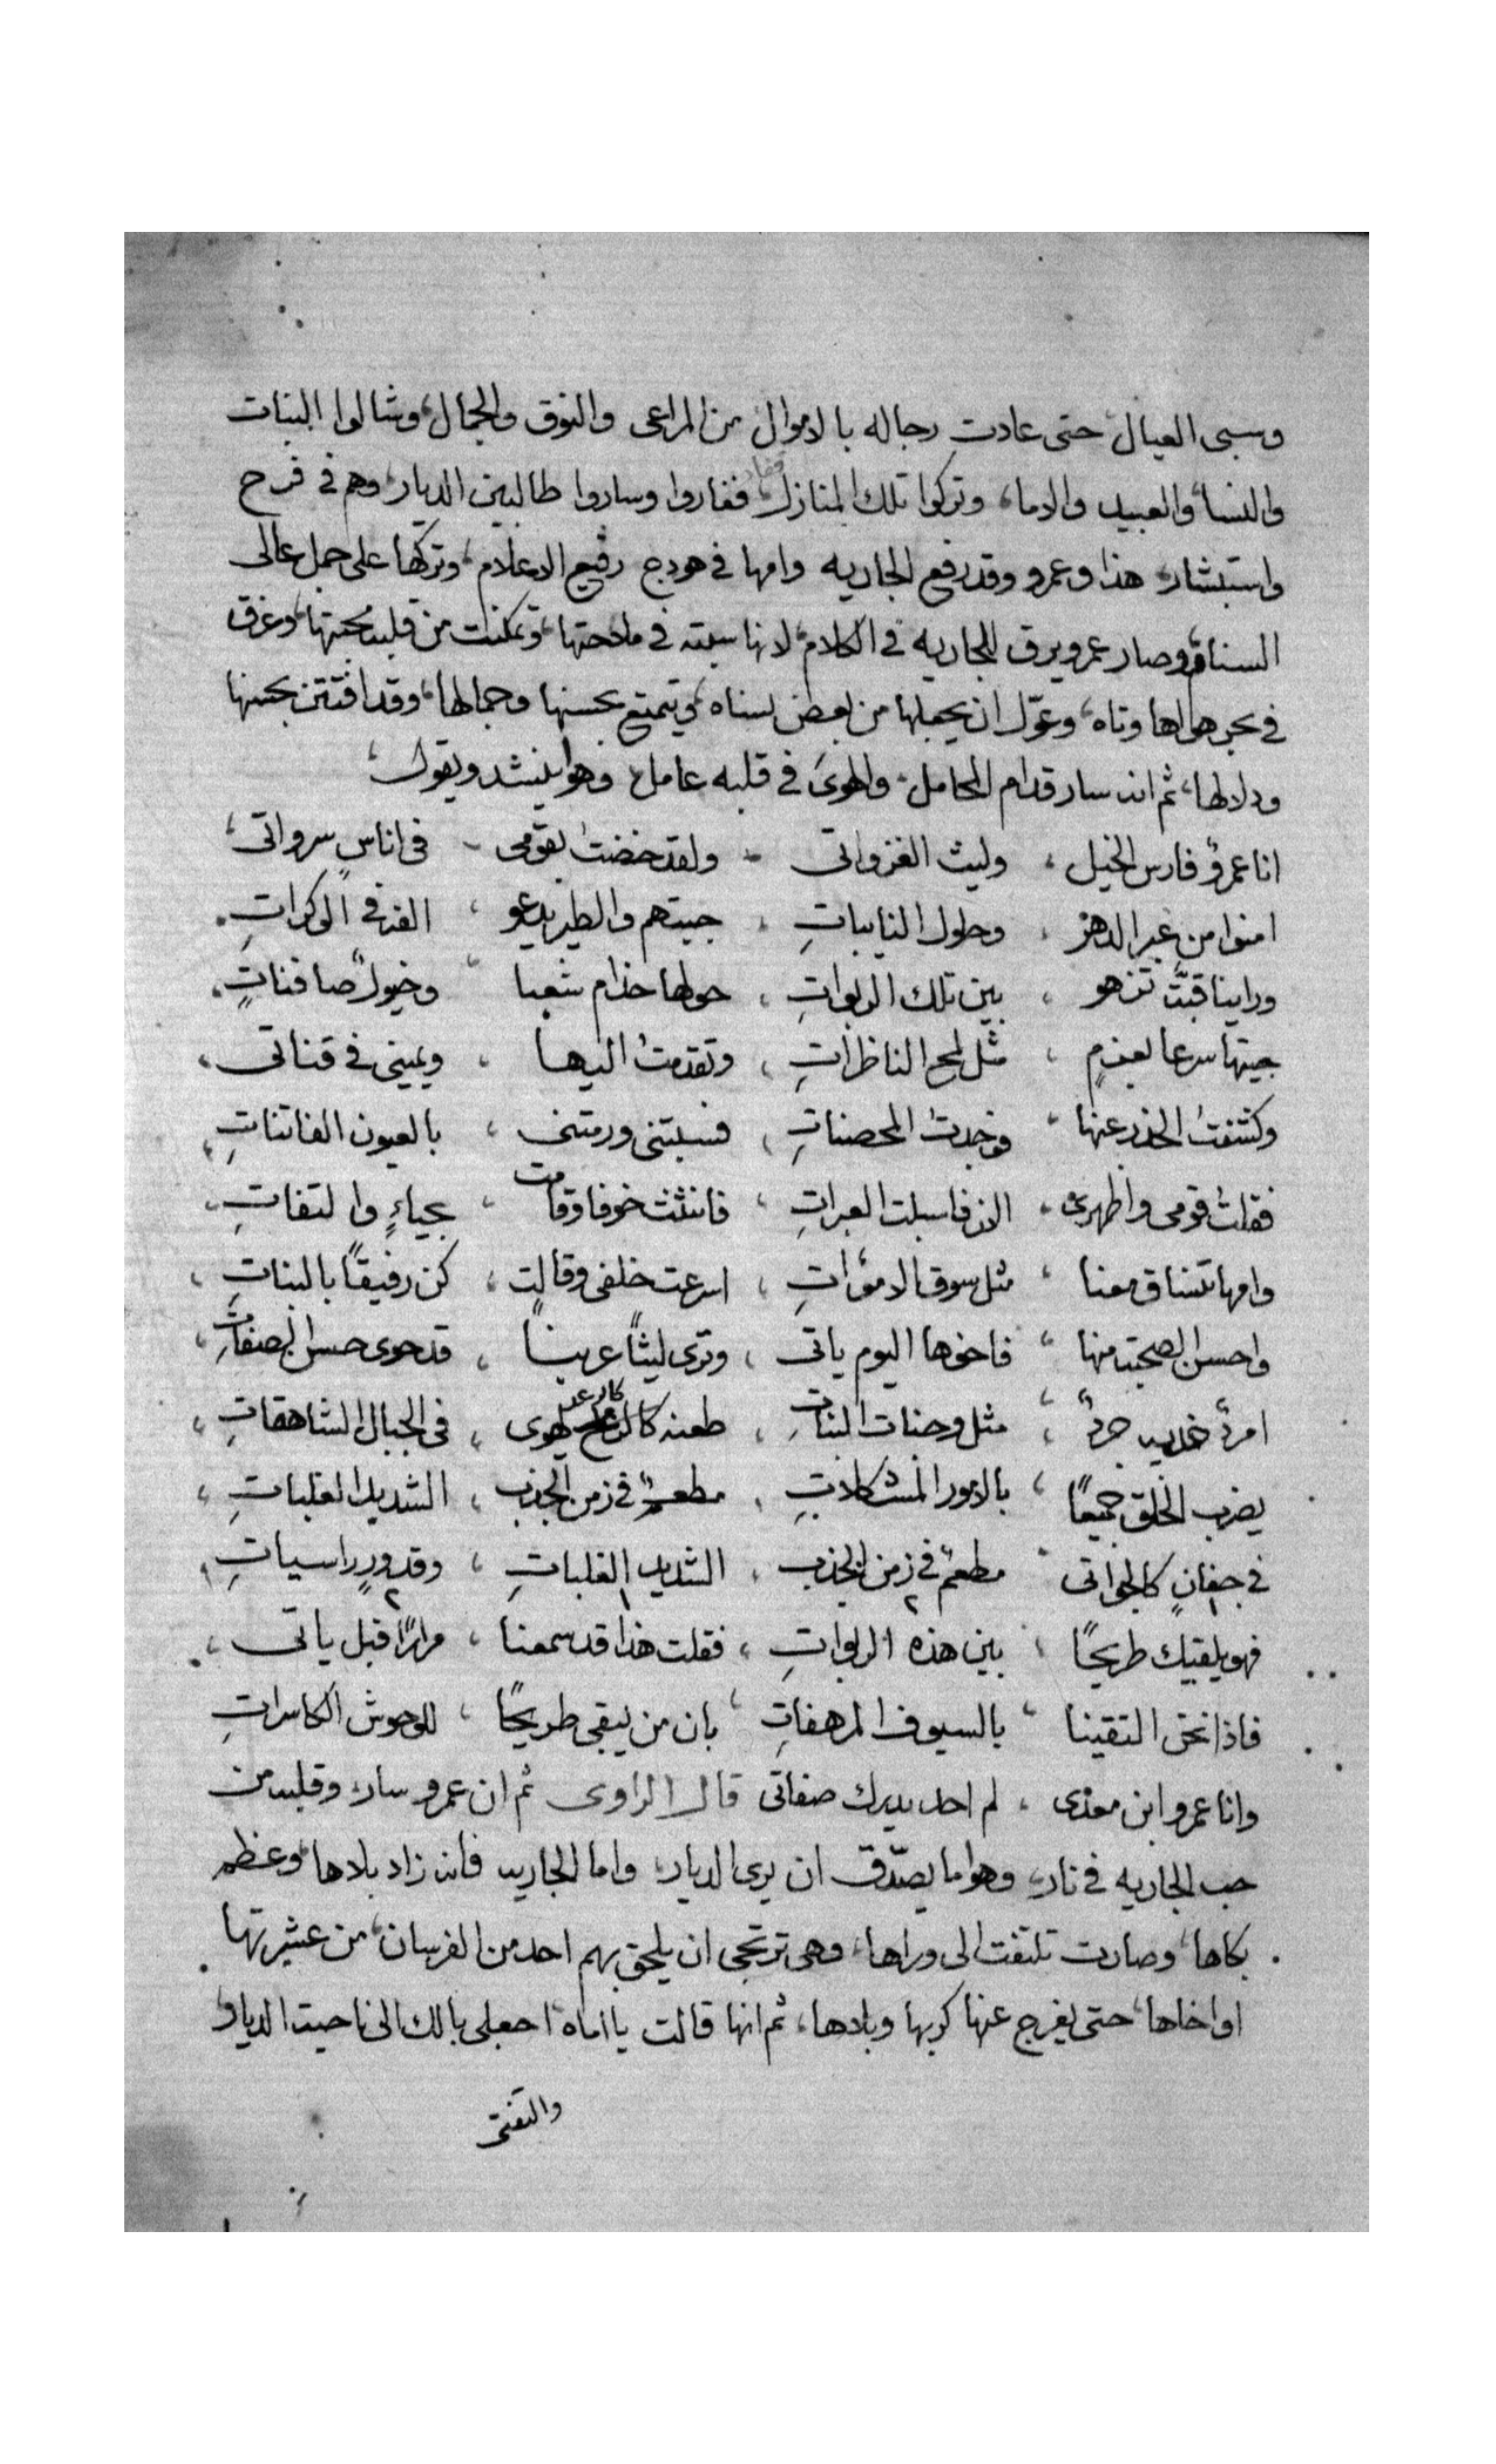 وسبى العيال، حتى عادت رجاله بالاموال من المراعى والنوق والجمال، وشالوا البنات
والنسا، والعبيد والاما، وتركوا تلك المنازل قفار وساروا طالبين الديار، وهم فى فرح
واستبشار، هذا وعمرو وقد رفع الجاريه وامها فى هودج رفيع الاعلام، وتركها على جمل عالى
السنام، وصار عمرو يرق للجاريه فى الكلام، لانها سبته فى ملاحتها، وتمكنت من قلبه محبتها، وغرق
فى بحر هواها وتاه، وعوّل ان يجعلها من بعض نساه، كي يتمتع بحسنها وجمالها، وقد افتتن بحسنها
ودلالها، ثم انه سار قدام المحامل، والهوى فى قلبه عامل، وهو ينشد ويقول،
انا عمروٌ فارس الخيل، وليث الغزواتى، ولقد خضت بقومى، فى اناسٍ سرواتى،
امنوا من غير الدهر، وحلول النايباتِ، جيتهم والطير يدعو، الفه فى الوكراتِ،
وراينا قبتً تزهو، بين تلك الربواتِ، حولها خدام شعبا، وخيولٌ صافناتٍ،
جيتها سرعا بعزمٍ، مثل لمح الناظراتِ، وتقدمت اليها، ويمينى فى قناتى،
وكشفت الخدر عنها، فوجدت المحصناتِ، فسبتنى ورمتنى، بالعيون الفاتناتِ،
فقلت قومى واظهرى، الان فاسبلت العبراتِ، فانثنت خوفا وقامت، بحياءٍ والتفاتِ،
وامها تنساق معنا، مثل سوق الامواتِ، اسرعت خلفى وقالت، كن رفيقًا بالبناتِ،
واحسن الصحبت منها، فاخوها اليوم ياتى، وترى ليثًا عرينا، قد حوى حسن الصفاتِ،
امردٌ جردٌ، مثل وجنات البناتِ، طعنه كالرعد يهوى، فى الجبال الشاهقاتِ،
يضرب الخلق جميعًا، بالامور المشكلاتِ، مطعمٌ فى زمن الجذب، الشديد الغلباتِ،
فى جفانٍ كالجواتى، مطعمٌ فى زمن الجذب، الشديد الغلباتِ، وقدورٍ راسياتِ،
فهو يلقيك طريحًا، بين هذه الربواتِ، فقلت هذا قد سمعنا، مرارًا قبل ياتى،
فاذا نحن التقينا، بالسيوف المرهفاتِ، بان من يبقى طريحًا، للوحوش الكاسراتِ
وانا عمرو ابن معدى، لم احد يدرك صفاتى قال الراوى ثم ان عمرو سار، وقلبه من
حب الجاريه فى نار، وهو ما يصدّق ان يرى الديار، واما الجاريه فانه زاد بلاها، وعظم
بكاها، وصارت تلتفت الى وراها، وهى ترتجى ان يلحق بهم احد من الفرسان، من عشيرتها
او اخاها، حتى يفرج عنها كربها وبلاها، ثم انها قالت يا اماه، اجعلى بالك الى ناحيت الديار
والتفتى